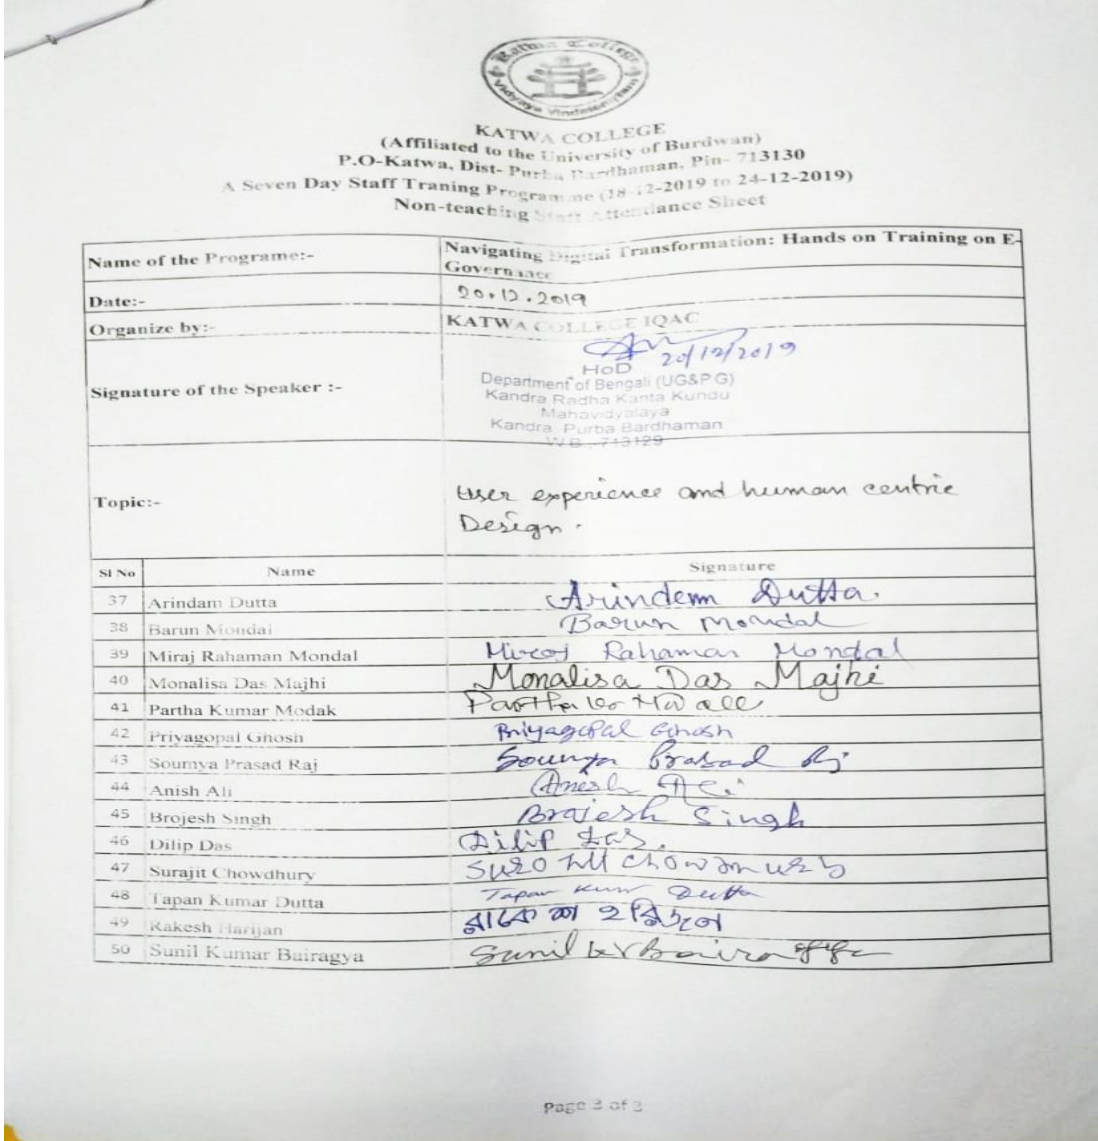 Katwa College
Vidyaya Vindateamritam
KATWA COLLEGE
(Affiliated to the University of Burdwan)
P.O-Katwa, Dist- Purba Bardhaman, Pin- 713130
A Seven Day Staff Traning Programme (18-12-2019 to 24-12-2019)
Non-teaching Staff Attendance Sheet
Name of the Programe:- Navigating Digital Transformation: Hands on Training on E-
Governance
Date:- 20.12.2019
Organize by:- KATWA COLLEGE IQAC
20/12/2019
HoD
Department of Bengali (UG&PG)
Signature of the Speaker :- Kandra Radha Kanta Kundu
Mahavidyalaya
Kandra, Purba Bardhaman
W.B.-713129
Topic:- User experience and human centric
Design.
Sl No Name Signature
37 Arindam Dutta Arindam Dutta.
38 Barun Mondal Barun Mondal
39 Miraj Rahaman Mondal Miraj Rahaman Mondal
40 Monalisa Das Majhi Monalisa Das Majhi
41 Partha Kumar Modak Partha
42 Priyagopal Ghosh Priyagopal Ghosh
43 Soumya Prasad Raj Soumya Prasad Raj
44 Anish Ali Anesh Ali
45 Brojesh Singh Brajesh Singh
46 Dilip Das Dilip Das.
47 Surajit Chowdhury Chowdhury
48 Tapan Kumar Dutta Tapan Kumar Dutta
49 Rakesh Harijan রাকেশ হরিজন
50 Sunil Kumar Bairagya Sunil Kr Bairagya
Page 3 of 3